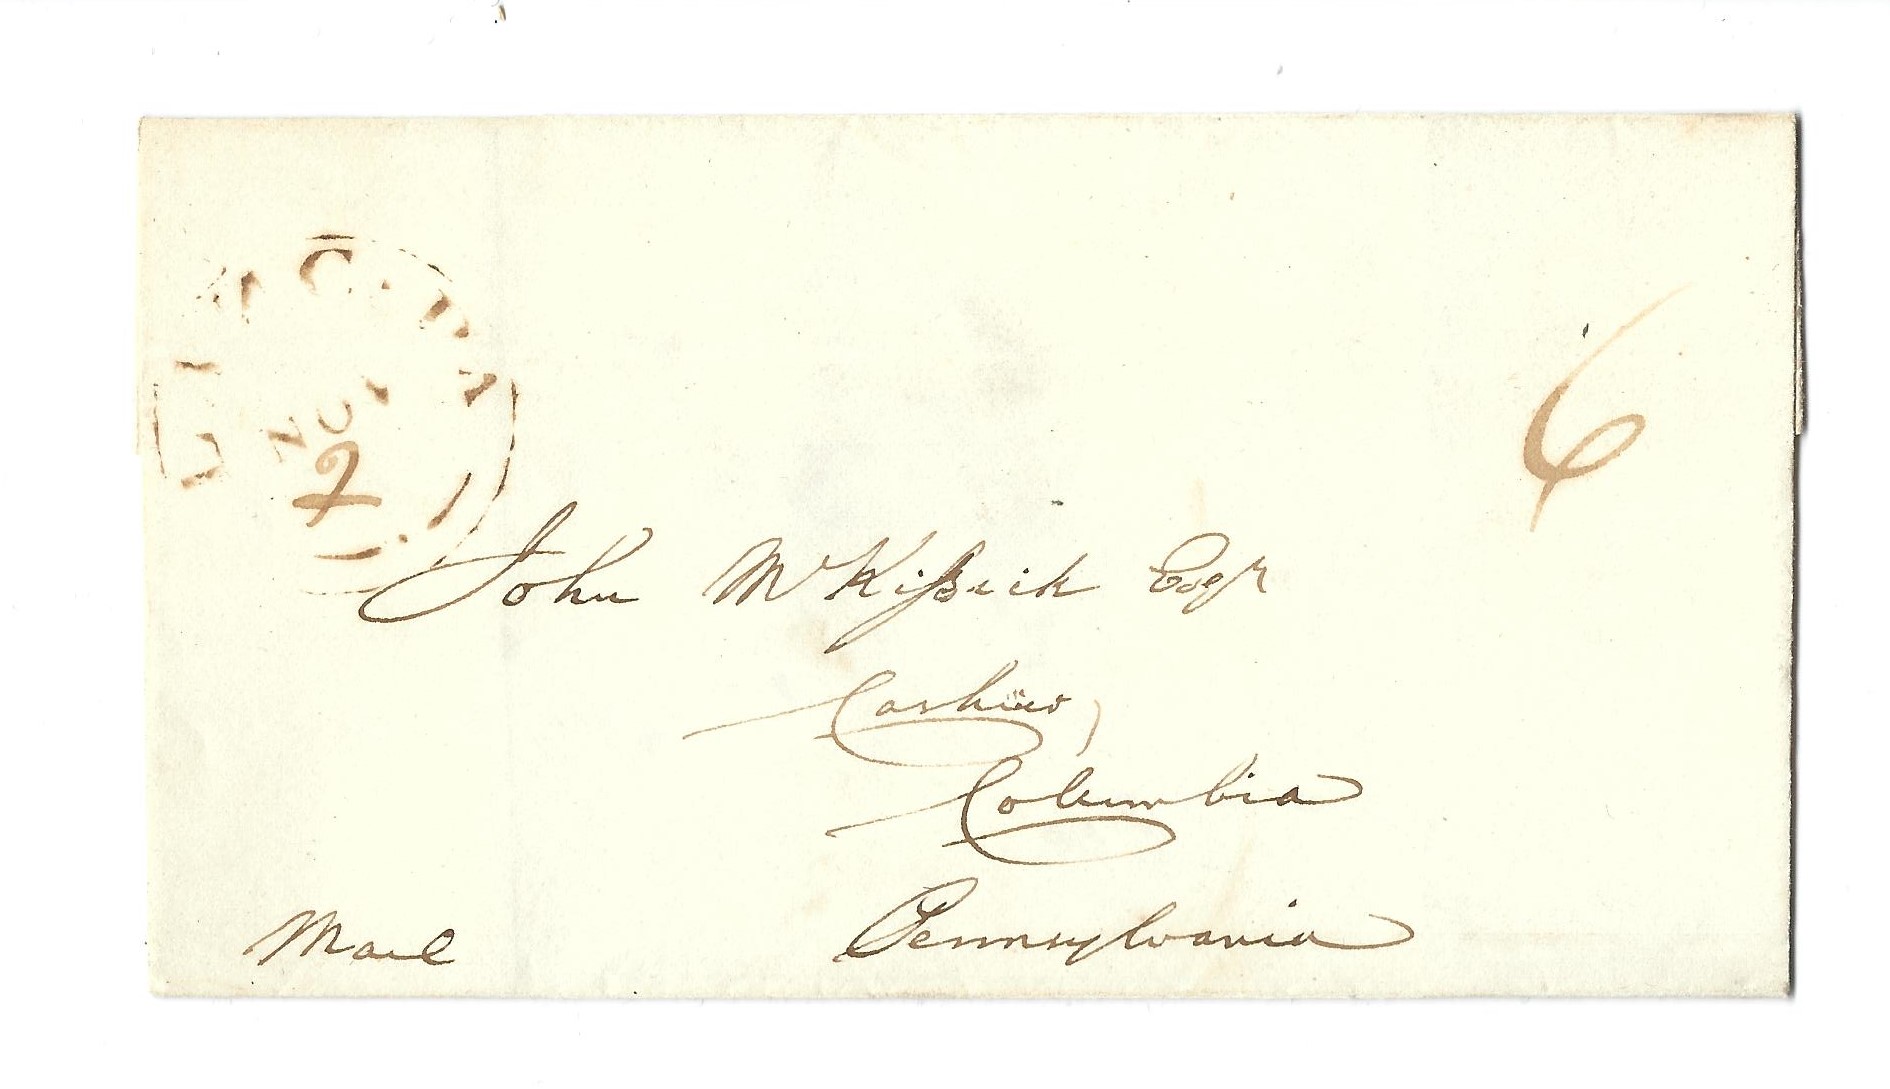 NOV
2
6
John McKissick Esqr
Cashier,
Columbia
Pennsylvania
Mail